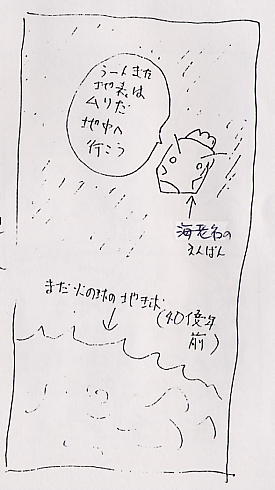 うーんまだ
地表は
ムリだ
地中へ
行こう
海老名の
えんばん
まだ火の球の地球
(40億年
前)